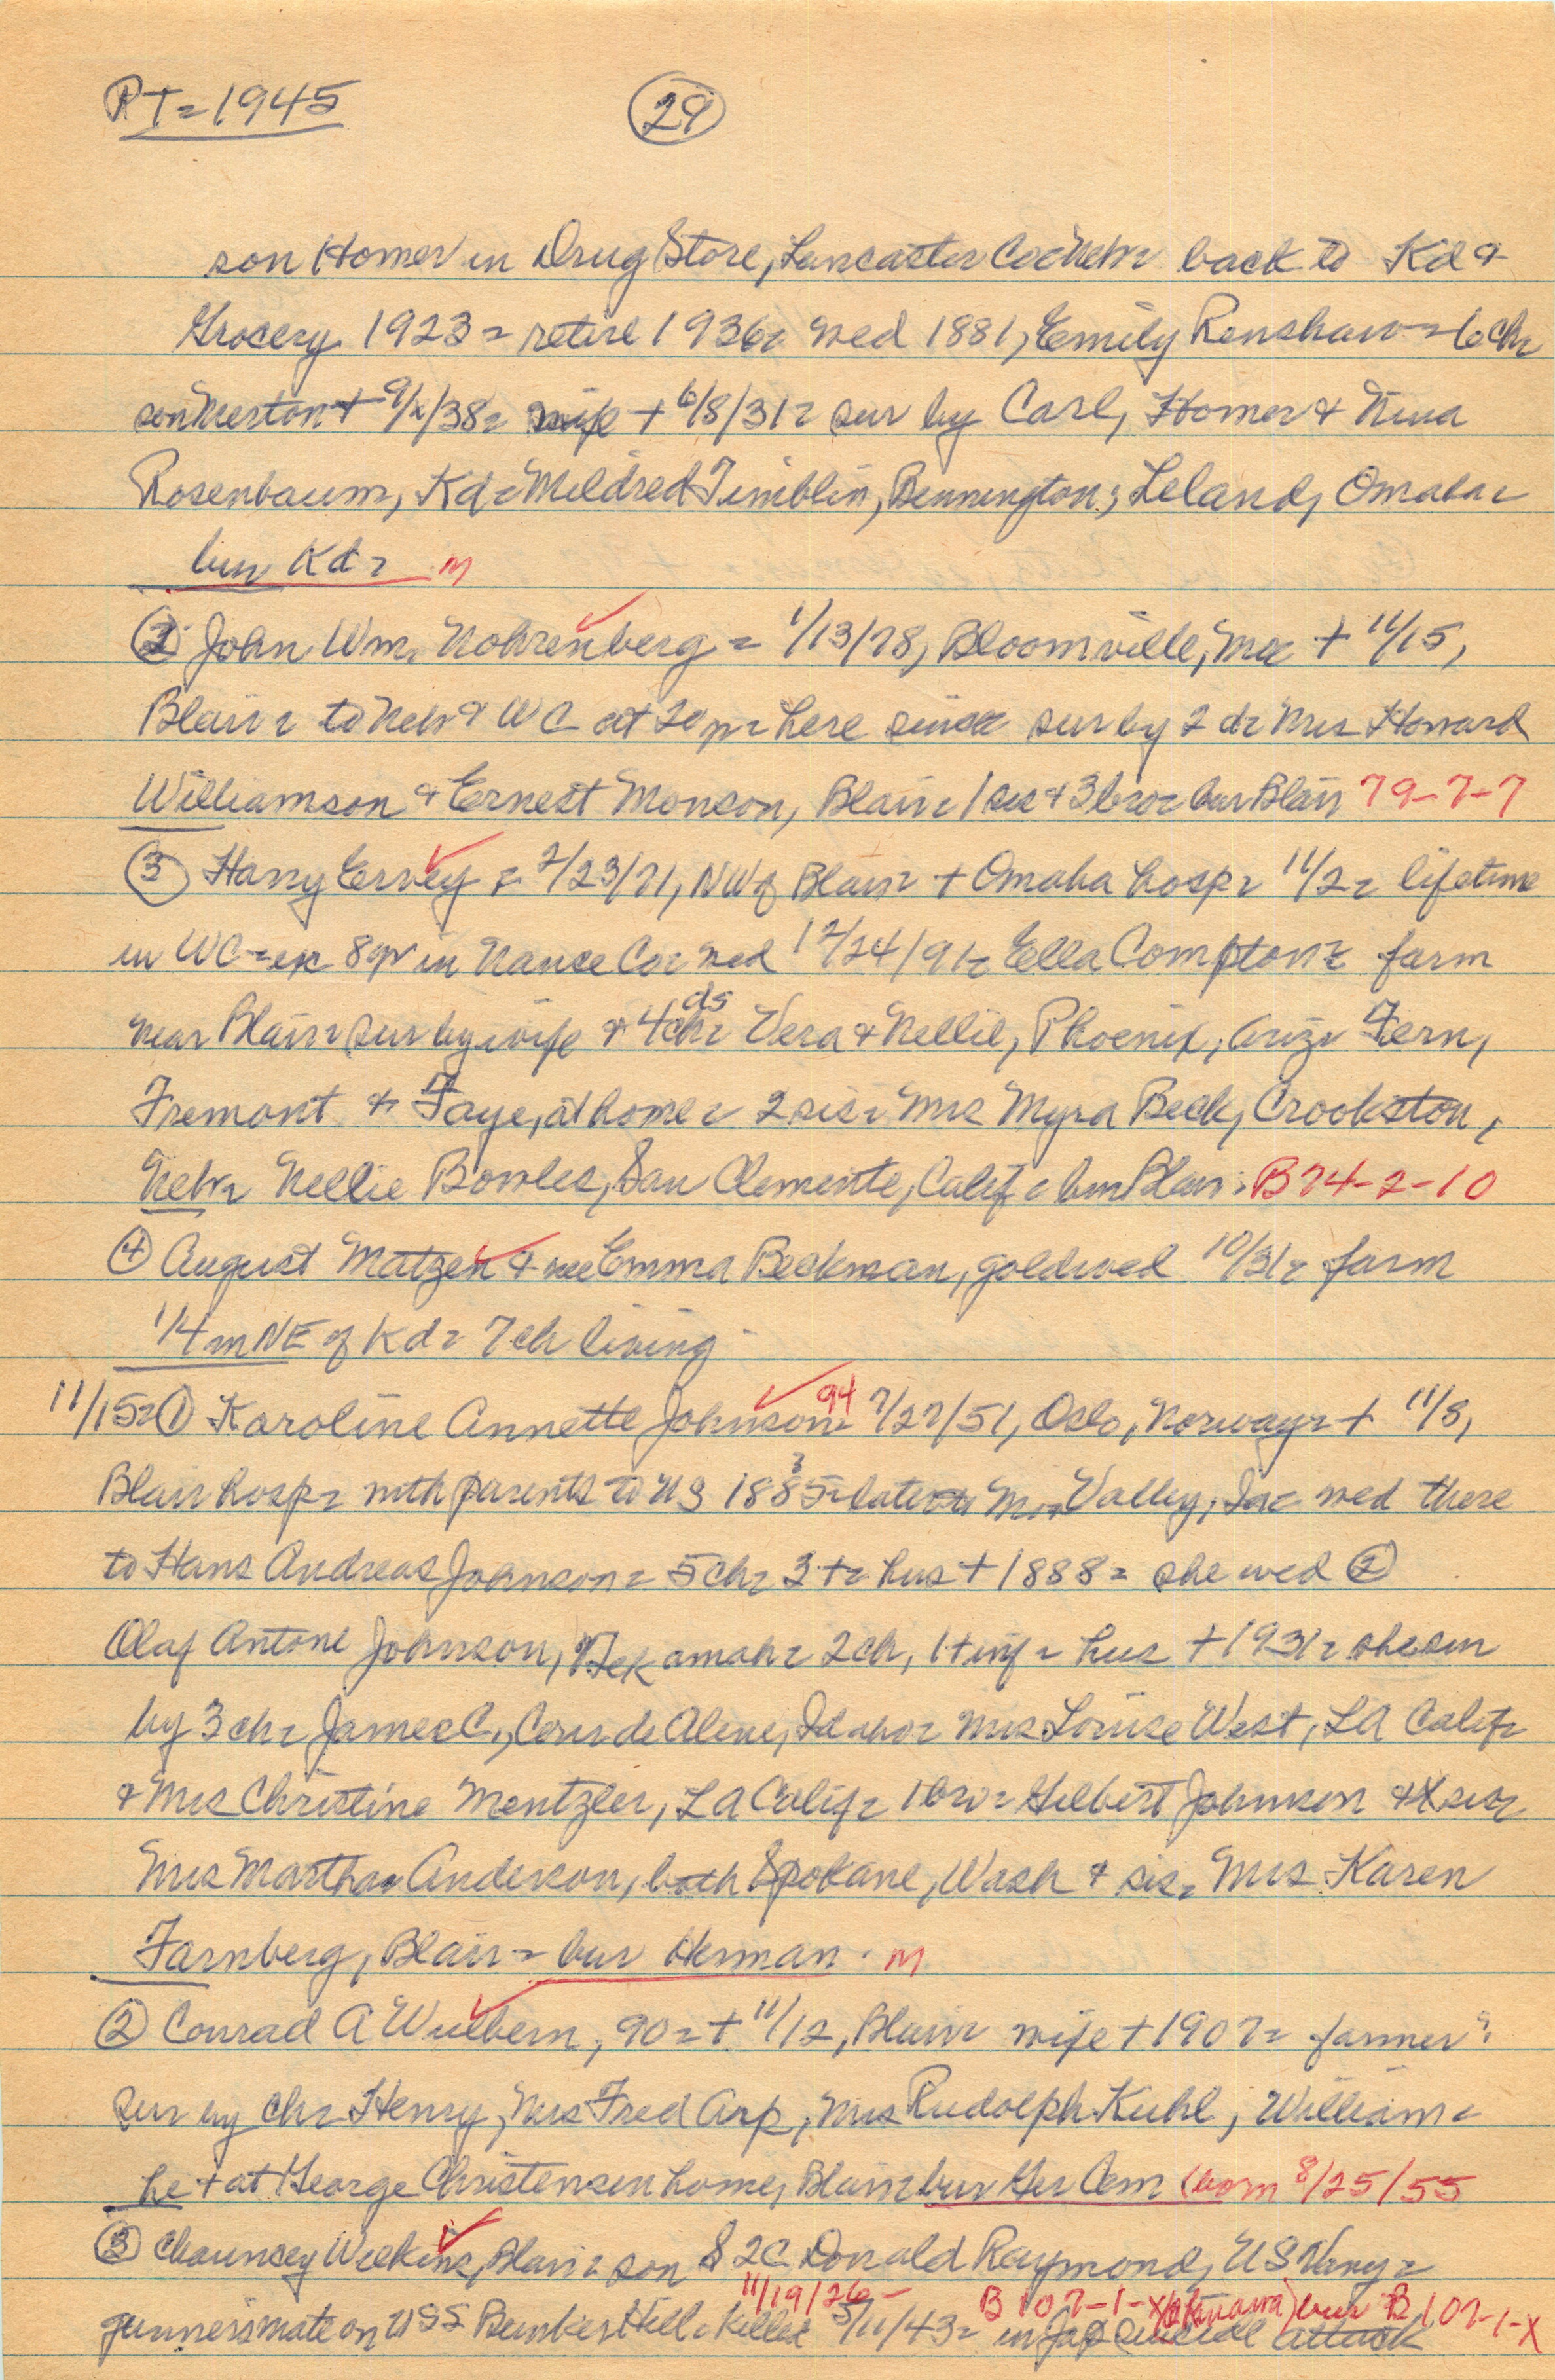 PT = 1945 (29)
son Homer in Drug Store, Lancaster Co = Nebr = back to Kd &
Grocery 1923 = retire 1936 = wed 1881, Emily Renshaw = 6 ch =
son Merton + 9/ /38 = wife + 6/8/31 = sur by Carl, Homer & Nina
Rosenbaum, Kd = Mildred Timblin, Bennington; Leland, Omaha =
bur Kd = M
(2) John Wm. Nohrenberg = 1/13/78, Bloomville, + 11/5,
Blair = to Nebr & WC at 20 yr = here since sur by 2 d = Mrs Howard
Williamson & Ernest Monson, Blair = 1 sis & 3 bro = bur Blair 79-7-7
(3) Harry Ervey = 2/23/71, NW of Blair = + Omaha hosp = 11/2 = lifetime
in WC = ex 8 yr in Nance Co = wed 12/24/91 = Ella Compton = farm
near Blair = sur by wife & 4 ch = ds Vera & Nellie, Phoenix, Ariz = Fern,
Fremont & Faye, at home = 2 sis = Mrs Myra Beck, Crookston,
Nebr = Nellie Bowles, San Clemente, Calif = bur Blair = B74-2-10
(4) August Matzen & nee Emma Beckman, gold wed 10/31 = farm
1/4 m NE of Kd = 7 ch living
11/15 = (1) Karoline Annette Johnson = 94 7/27/51, Oslo, Norway = + 11/8,
Blair hosp = with parents to US 1883 = later Mo Valley, Ia = wed there
to Hans Andreas Johnson = 5 ch = 3 + = hus + 1888 = she wed (2)
Olaf Antone Johnson, Tekamah = 2 ch, 1 + inf = hus + 1931 = she sur
by 3 ch = James C., Couer de Alene, Idaho = Mrs Louise West, LA Calif =
& Mrs Christine Mentzler, LA Calif = 1 bro = Gilbert Johnson & sis =
Mrs Martha Anderson, both Spokane, Wash & sis = Mrs Karen
Farnberg, Blair = bur Herman. M
(2) Conrad A Wulbern, 90 = + 11/12, Blair = wife + 1907 = farmer =
sur by ch = Henry, Mrs Fred Arp, Mrs Rudolph Kuhl, William =
he + at George Christensen home, Blair = bur Ger Cem (born 8/25/55
(3) Chauncey Wilkins, Blair = son S 2C Donald Raymond, US Navy =
11/19/26 - B 107-1-X (Okinawa) bur B 107-1-X
gunnersmate on USS Bunker Hill = killed 5/11/43 = in Jap suicide attack